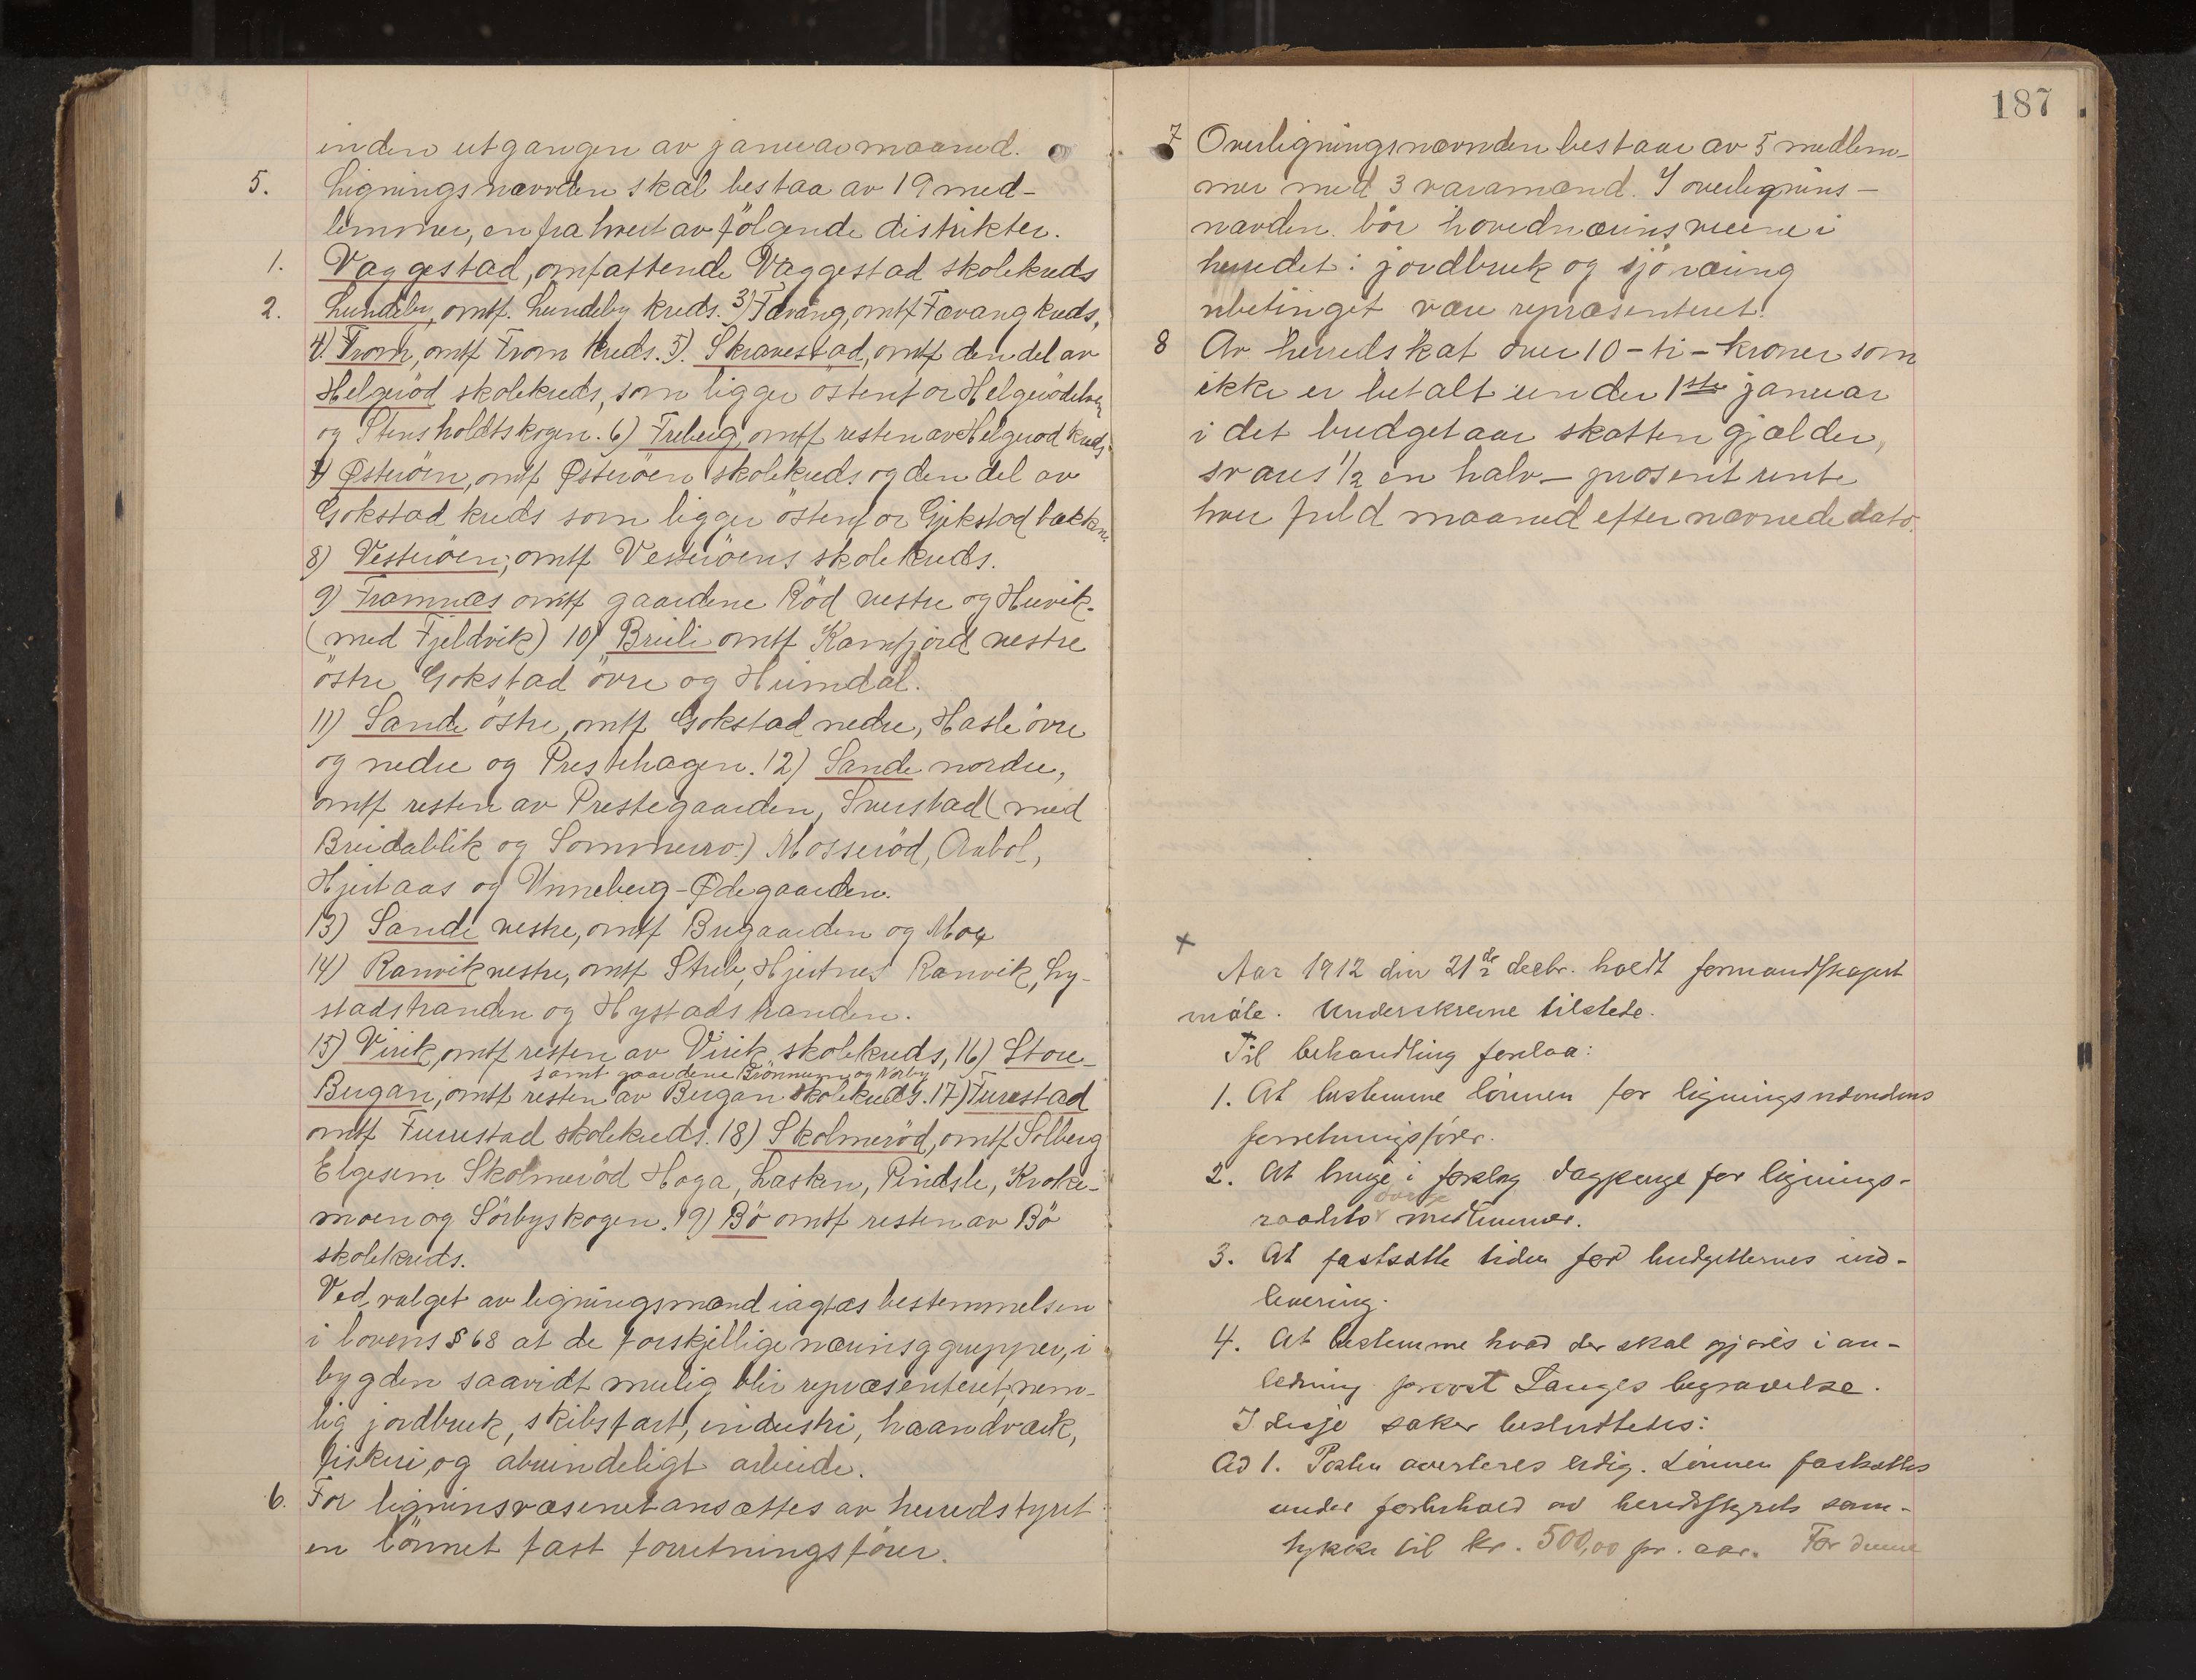 inden utgangen av januar maaned.
5. Ligningsnævnden skal bestaa av 19 med-
lemmer, en fra hvert av følgende distrikter.
1. Vaggestad, omfattende Vaggestad skolekreds
2. Lundeby, omf. Lundeby kreds. 3) Tævang, omf Tævang kreds,
4). From, omf From kreds. 5). Skravestad, omf den del av
Helgeröd skolekreds, som ligger østenfor Helgerödelven
og Stensholdtskogen. 6) Freberg, omf resten av Helgerod kreds.
7) Østerøen, omf Østerøen skolekreds og den del av
Gokstad kreds som ligger østenfor Gjekstad bækken.
8) Vesterøen, omf Vesterøens skolekreds.
9) Framnæs omf gaardene Röd vestre og Huvik.
(med Fjeldvik) 10) Breili omf Kamfjord vestre
østre Gokstad övre og Heimdal.
11) Sande østre, omf Gokstad nedre, Hasle övre
og nedre og Prestehagen. 12) Sande nordre,
omf resten av Prestegaarden, Sverstad (med
Breidablik og Sommerro.) Mosseröd, Aabol,
Hjertaas og Unneberg-Ødegaarden.
13) Sande vestre, omf Bugaarden og Mo
14) Ranvik vestre, omf Stub, Hjertnes Ranvik, Ly-
stadstranden og Hystadstranden.
15) Virik, omf resten av Virik skolekreds, 16) Store
samt gaardene Brönnum og Nørby
Bugan, omf resten av Bugan skolekreds. 17) Furustad
omf Furustad skolekreds. 18) Skolmeröd, omf Solberg
Elgesem Skolmeröd Haga, Lasken, Pindsle, Kroke-
moen og Sörbyskogen. 19) Bö omf resten av Bö
skolekreds.
Ved valget av ligningsmænd iagtas bestemmelsen
i lovens § 68 at de forskjellige nærinsggrupper, i
bygden saavidt mulig blir repræsenteret, nem-
lig jordbruk, skibsfart, industri, haandverk,
fiskeri, og almindeligt arbeide.
6. For ligninsvæsenet ansættes av herredstyret
en lönnet fast forretningsförer.
187
7 Overligningsnævnden bestaar av 5 medlem-
mer med 3 varamænd. I overlignins-
nævden bör hovednæringsveiene i
herredet: jordbruk og sjönæring
ubetinget være repræsenteret.
8 Av herredskat over 10 - ti - kroner som
ikke er betalt inden 1ste januar
i det budgetaar skatten gjælder,
svares 1/2 en halv - prosent rente
hver fuld maaned efter nævnede dato.
x
Aar 1912 den 21de decbr. holdt formandskapet
möte. Underskrevne tilstede.
Til behandling forelaa:
1. At bestemme lönnen for ligningsnævndens
forretningsförer.
2. At bringe i forslag dagpenge for lignings-
øvrige
raadets medlemmer.
3. At fastsætte tiden for budgetternes ind-
levering.
4. At bestemme hvad der skal gjöres i an-
ledning provst Langes begravelse.
I disse saker besluttedes:
Ad 1. Posten averteres ledig. Lönnen fastsættes
under forbehold av herredsstyrets sam-
tykke til kr. 500,00 pr. aar. For denne